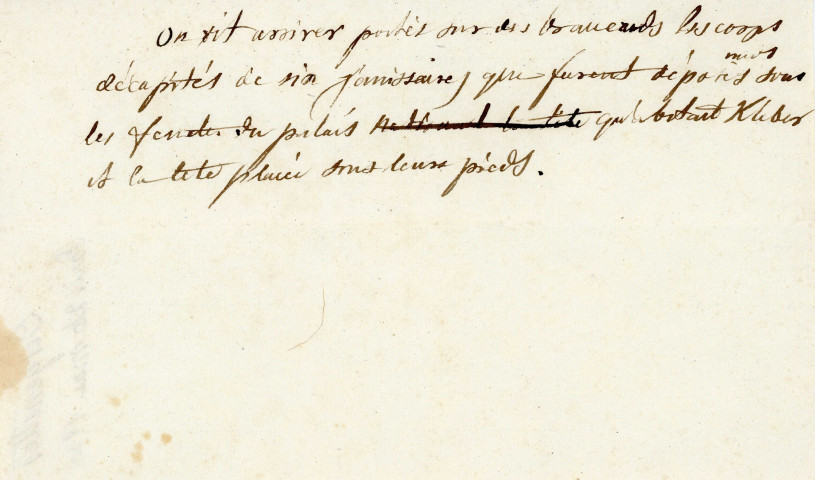 On vit arriver portés sur des brancards les corps
décapités de six janissaires que furent déposés nuds sous
les fenetres du palais qu'habitait Kleber
et la tete placée sous leurs pieds.